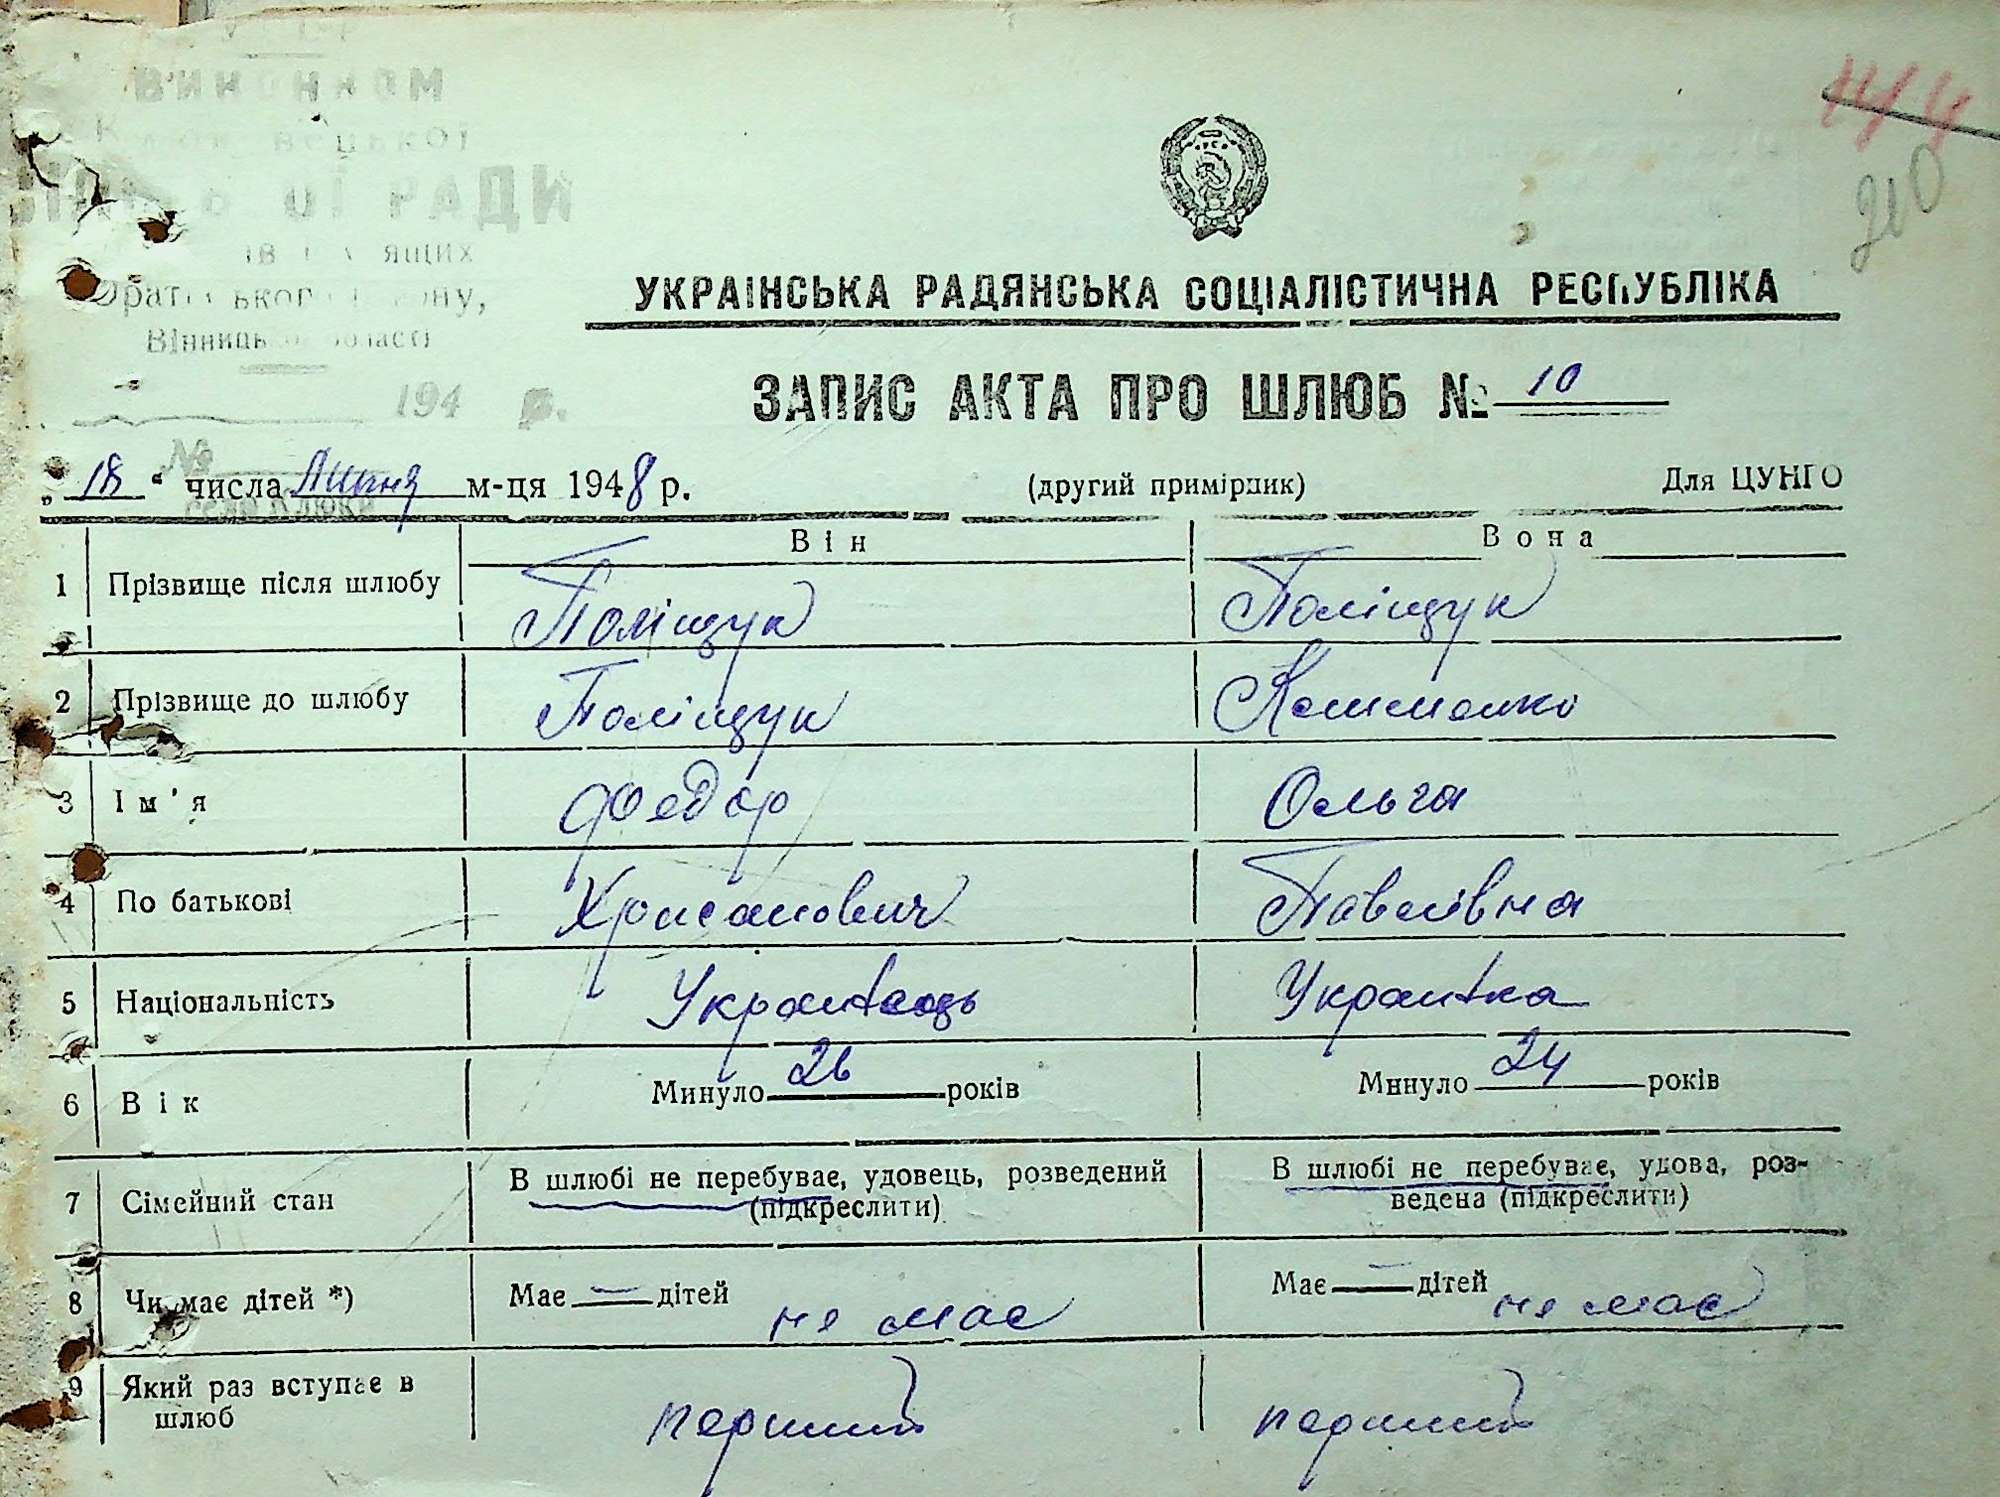 ВИКОНКОМ
РАДИ
194 р.
№
144
210
УКРАІНСЬКА РАДЯНСЬКА СОЦІАЛІСТИЧНА РЕСПУБЛІКА
ЗАПИС АКТА ПРО ШЛЮБ № 10
„ 18 “ числа Липня м-ця 1948 р. (другий примірник) Для ЦУНГО
Він Вона
1 Прізвище після шлюбу Поліщук Поліщук
2 Прізвище до шлюбу Поліщук
3 Ім'я Федор Ольга
4 По батькові Хрисанович Павлівна
5 Національність Українець Українка
6 Вік Минуло 26 років Минуло 24 років
7 Сімейний стан В шлюбі не перебуває, удовець, розведений (підкреслити) В шлюбі не перебуває, удова, роз-
ведена (підкреслити)
8 Чи має дітей *) Має — дітей не має Має — дітей не має
9 Який раз вступає в
шлюб перший перший